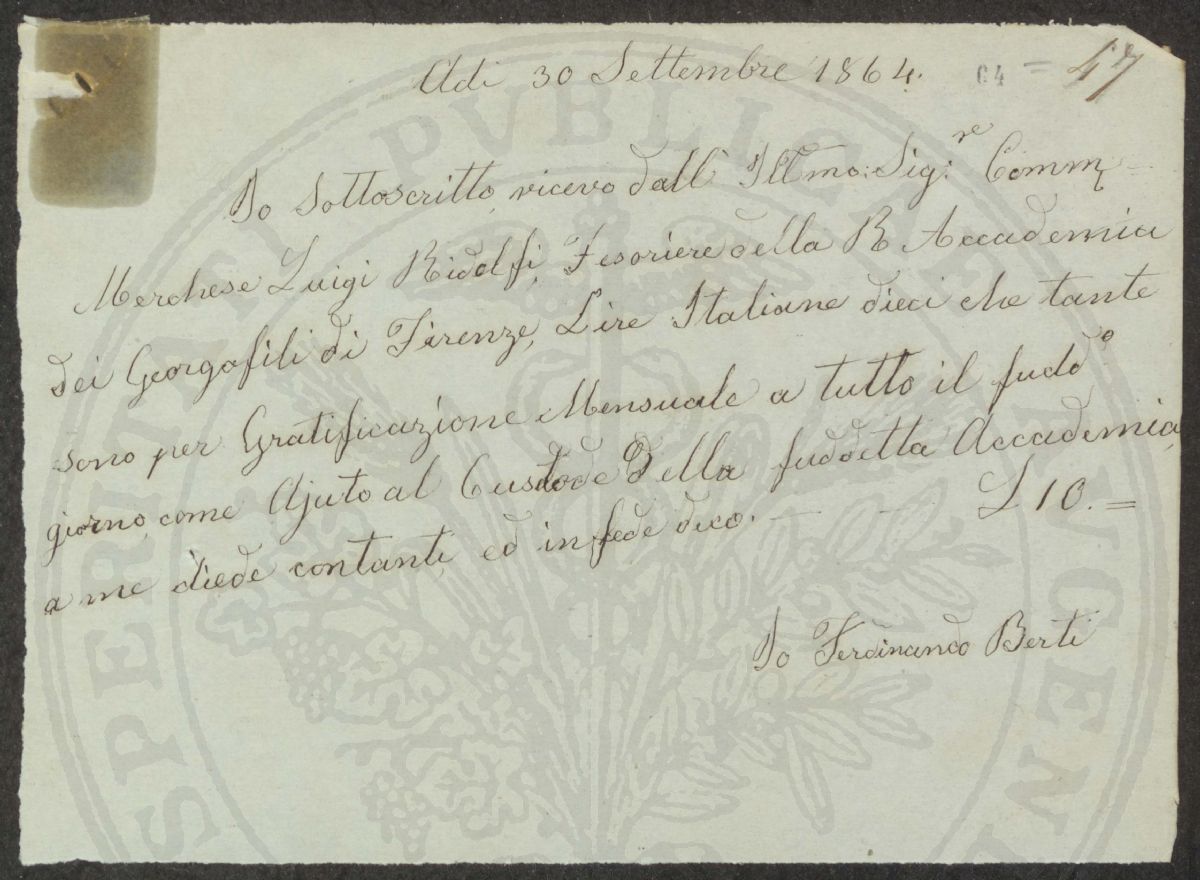 Adi 30 Settembre 1864. 64 = 47
Io Sottoscritto, ricevo dall' Illmo: Sig:re Comm
Merchese Luigi Ridolfi, Tesoriere della R Accademia
dei Georgofili di Firenze, Lire Italiane dieci che tante
sono per Gratificazione Mensuale a tutto il sudd°
giorno, come Ajuto al Custode Della suddetta Accademia,
a me diede contanti, ed in fede dico. — — — £ 10. =
Io Ferdinando Berti
PROSPERITATI PVBLICAE AVGENDAE